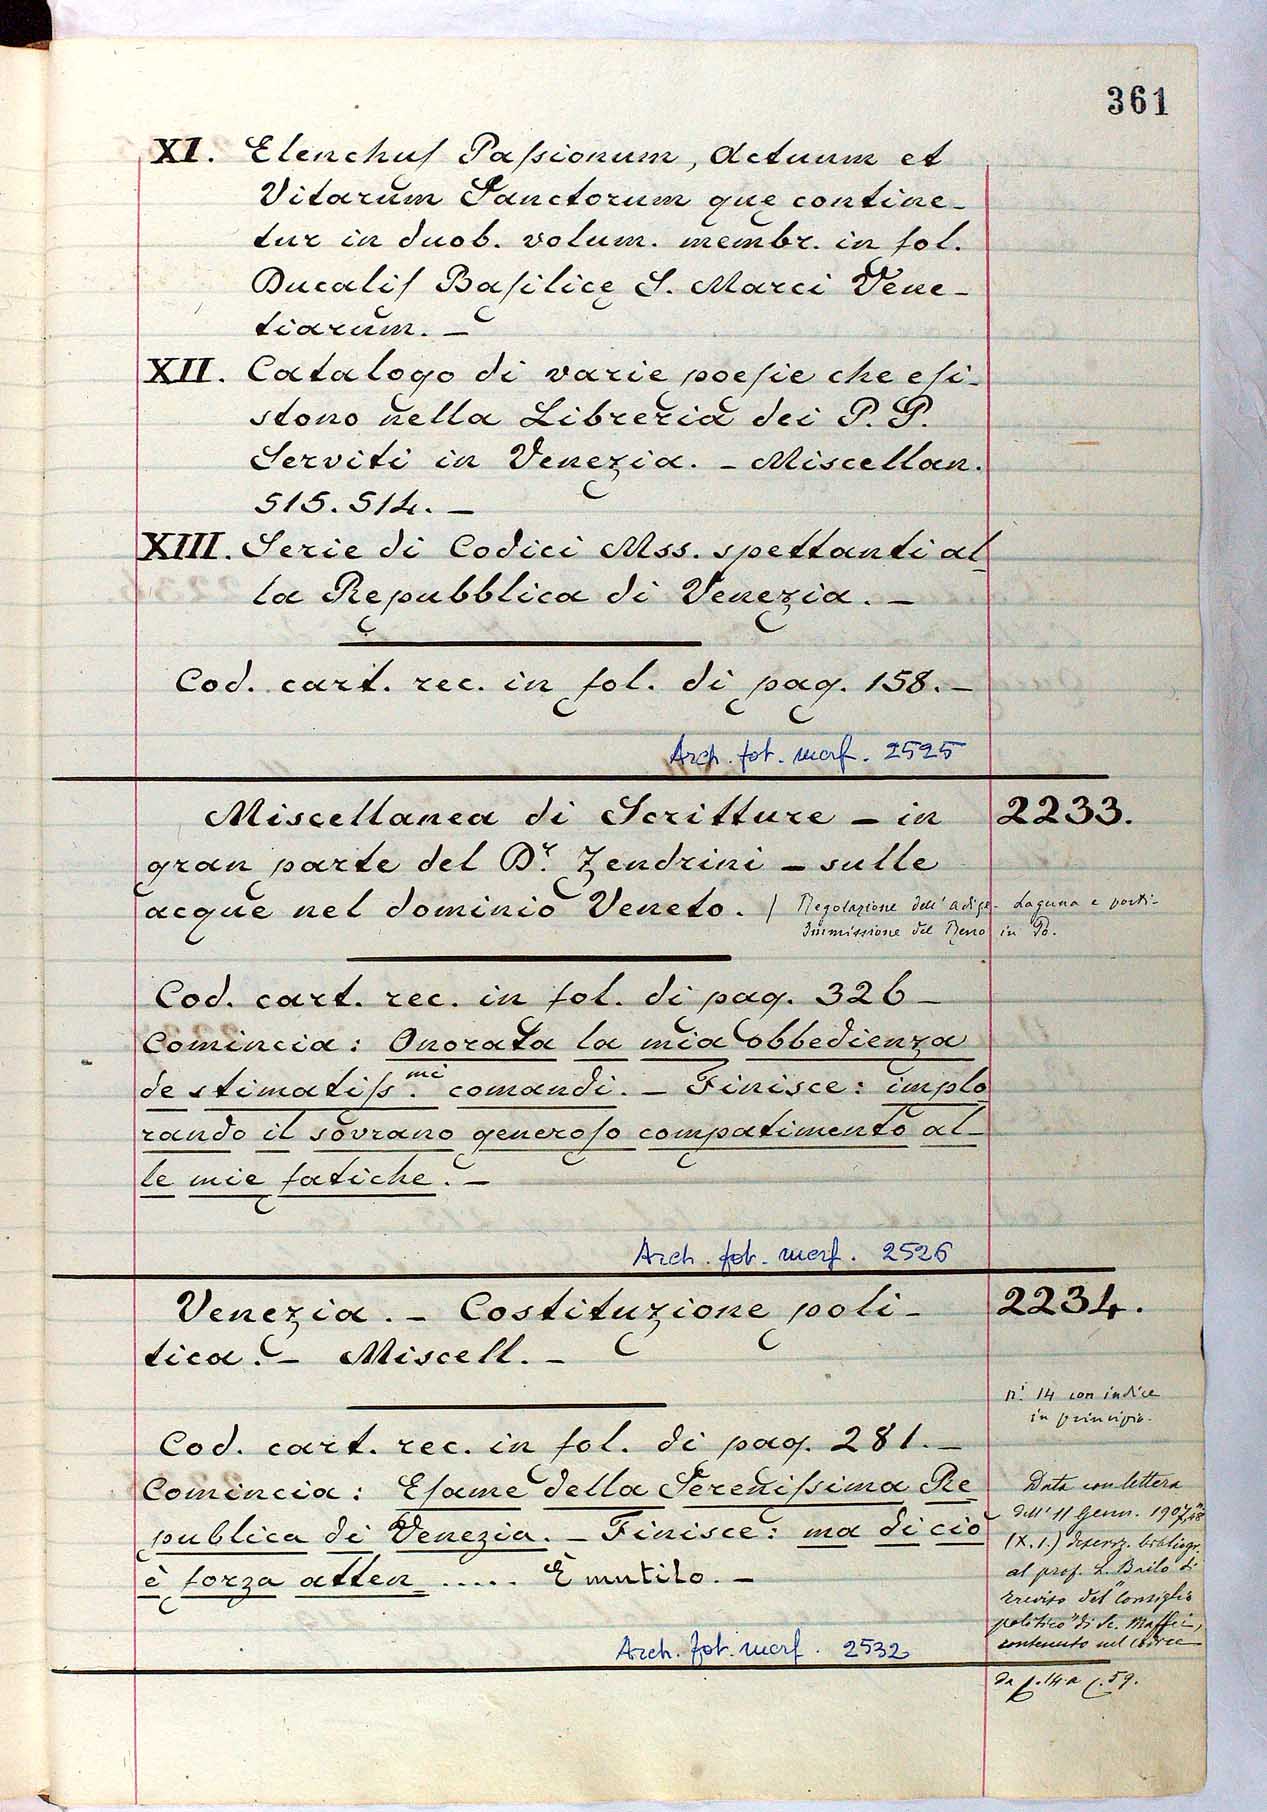 361
XI. Elenchuſ Paſsionum, Actuum et
Vitarum Sanctorum quę contine-
tur in duob. volum. membr. in fol.
Ducaliſ Baſilicę S. Marci Vene-
tiarum. –
XII. Catalogo di varie poeſie che eſi-
stono nella Libreria dei P. P.
Serviti in Venezia. – Miscellan.
515. 514. –
XIII. Serie di Codici Mss. spettanti al-
la Repubblica di Venezia. –
Cod. cart. rec. in fol. di pag. 158. –
Arch. fot. marc. 2525
Miscellanea di Scritture – in 2233.
gran parte del Dr. Zendrini – sulle
acque nel dominio Veneto. / Regolazione dell' Adige - Laguna e porti -
Immissione del Reno in Po.
Cod. cart. rec. in fol. di pag. 326 –
Comincia: Onorata la mia obbedienza
de stimatiſs.mi comandi. – Finisce: implo
rando il sovrano generoſo compatimento al-
le mie fatiche. –
Arch. fot. marc. 2526
Venezia. – Costituzione poli- 2234.
tica. – Miscell. –
n.i 14 con indice
in principio.
Cod. cart. rec. in fol. di pag. 281. –
Comincia: Eſame della Sereniſsima Re
publica di Venezia. – Finisce: ma di ciò
è forza atten ..... È mutilo. –
Data con lettera
dell' 11 Genn. 1907
(X. 1.) descriz. bibliogr.
al prof. L. Bailo di
Treviso del "Consiglio
politico" di Sc. Maffei,
contenuto nel codice
da c. 14 a c. 59.
Arch. fot. marc. 2532